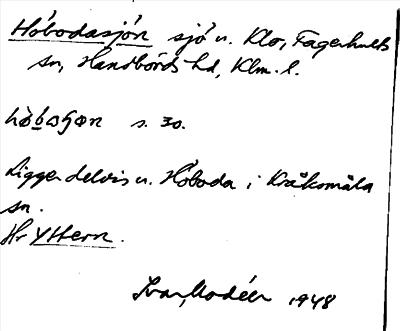 Höbodasjön sjö v. Klo, Fagerhults
sn, Handbörds hd, Klm. l.
s. 30.
Ligger delvis u. Höboda i Kråksmåla
sn.
Hr Yttern.
Ivar Modéer 1948